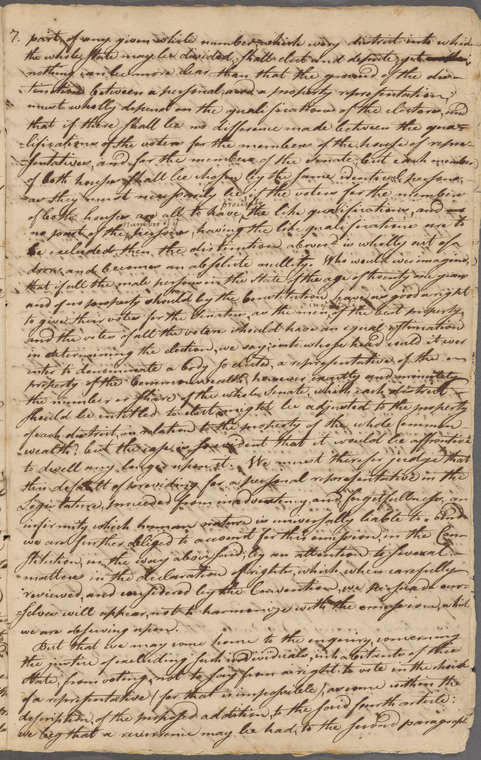 7. part of any given whole number which every district into which
the whole State may be divided, shall elect and depute, yet
nothing can be more clear than that the ground of the dis=
tinction between a personal, and a property representation,
must wholly depend on the qualifications of the electors, and
that if there shall be no difference made between the qua=
lifications of the voters for the members of the house of repre=
sentatives, and for the members of the senate, but each member
of both houses shall be chosen by the same identical persons,
as they must necessarily be, if the voters for the members
of both houses are all to have precisely the like qualifications, and
no part number of the persons, having the like qualifications are to
be excluded, then, the distinction abovesaid is wholly out of
doors, and becomes an absolute nullity. Who would ever imagine,
that if all the male persons in the State of the age of twenty one years
and of no property should by the Constitution have as good a right
to give their votes for the Senators, as the men of the best property
and the votes of all the voters should have an equal estimation
in determining the election, we say, into whose head could it ever
enter to denominate a body so elected, a representative of the
property of the Commonwealth, however exactly and minutely
the number or share of the whole Senate, which each district
should be intitled to elect, might be adjusted to the property
of each district, in relation to the property of the whole Common
wealth, but the case is so evident that it would be affrontive
to dwell any longer upon it. We must therefore judge that
this default of providing for a personal representative in the
Legislature, proceeded from inadvertency, and forgetfullness, an
infirmity which human nature is universally liable to, and
we are further obliged to account for this omission, in the Con=
stitution, in the way abovesaid, by an attention to several
matters in the declaration of rights, which, when carefully
reviewed, and considered by the Convention, we perswade our=
selves will appear, not to harmonize with the omission, which
we are observing upon.
But that we may come home to the inquiry, concerning
the justice of excluding such individuals, inhabitants of this
State, from voting, not to say from a right to vote in the choice
of a representative (for that is impossible), as come within the
description, of the proposed addition to the said fourth article:
we beg that a recurrence may be had, to the second paragraph